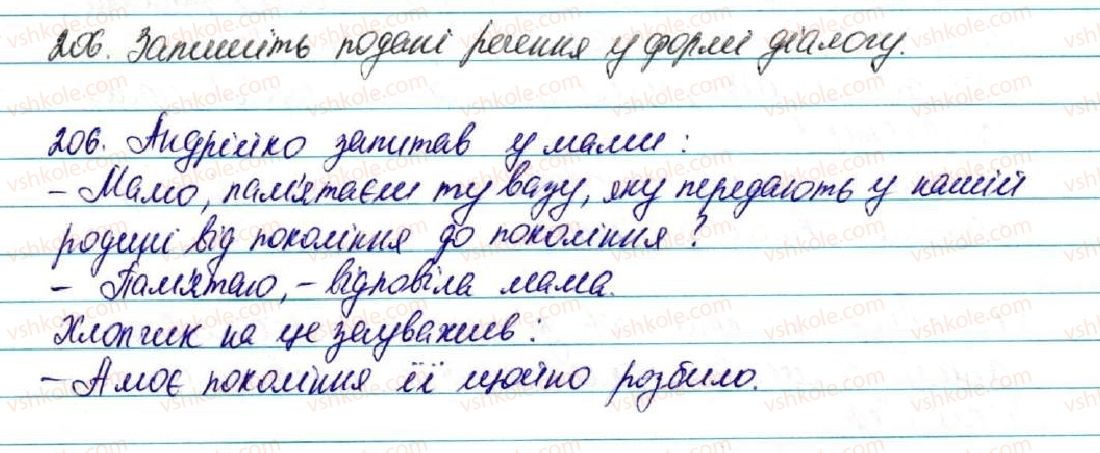 206. Запишіть подані речення у формі діалогу.
206. Андрійко запитав у мами:
– Мамо, пам'ятаєш ту вазу, яку передають у нашій
родині від покоління до покоління?
– Пам'ятаю, – відповіла мама.
Хлопчик на це зауважив:
– А моє покоління її щойно розбило.